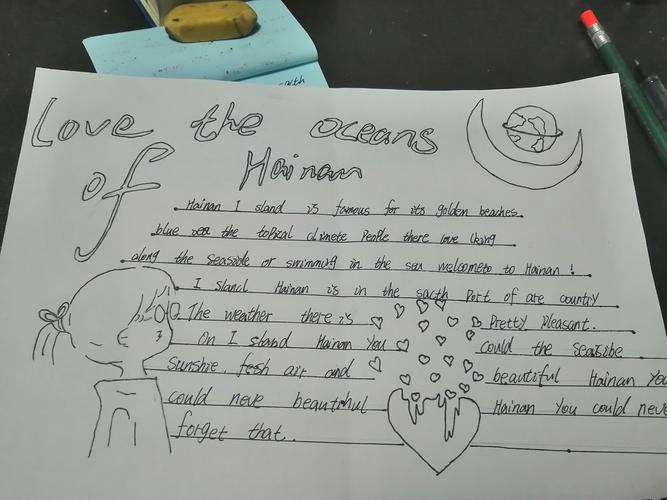 Love the oceans
of Hainan
Hainan I sland is famous for its golden beaches.
blue sea the topical climete People there love lking
along the seaside or swimming in the sea welcometo to Hainan !
I sland Hainan is in the sacth Port of are country
The weather there is Pretty Pleasant.
On I sland Hainan You could the seasibe
sunshire, fesh air and beautiful Hainan You
could neve beautuhul Hainan You could neve
forget that..